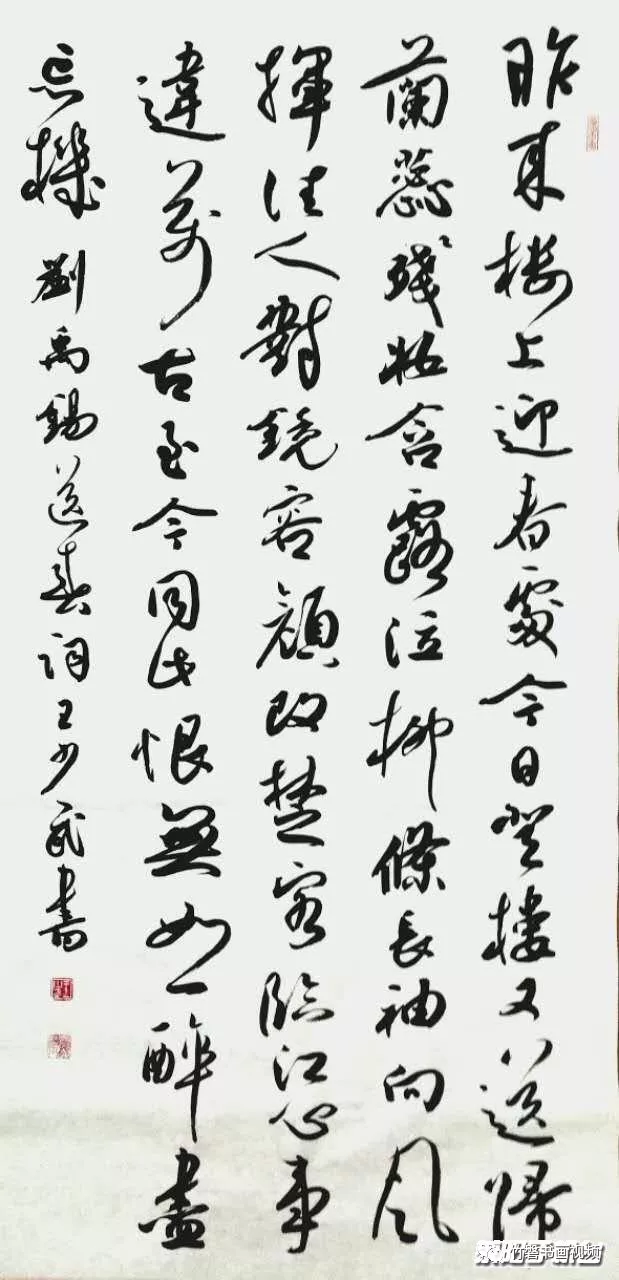 昨来樓上迎春處今日登樓又送歸
蘭蕊殘粧含露泣柳條長袖向風
揮佳人對鏡容顏改楚客臨江心事
違萬古至今同此恨無如一醉盡
忘機 劉禹錫送春詞 王少武書
竹箐书画视频